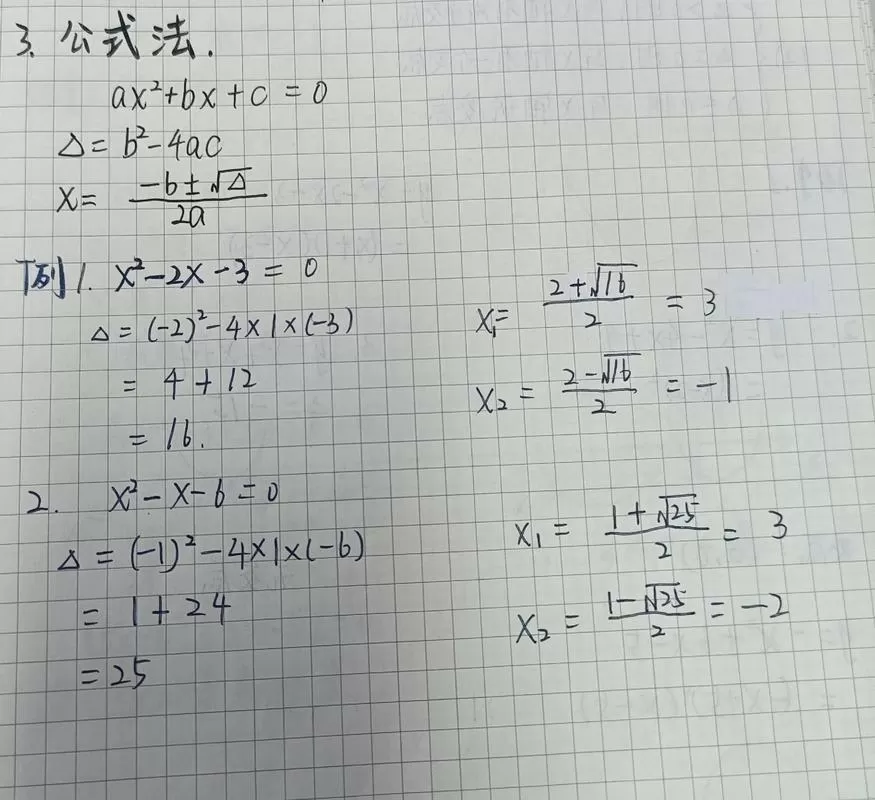 3. 公式法.
ax²+bx+c=0
Δ=b²-4ac
x=(-b±√Δ)/2a
例1. x²-2x-3=0
Δ=(-2)²-4×1×(-3)
=4+12
=16.
x₁=(2+√16)/2=3
x₂=(2-√16)/2=-1
2. x²-x-6=0
Δ=(-1)²-4×1×(-6)
=1+24
=25
x₁=(1+√25)/2=3
x₂=(1-√25)/2=-2